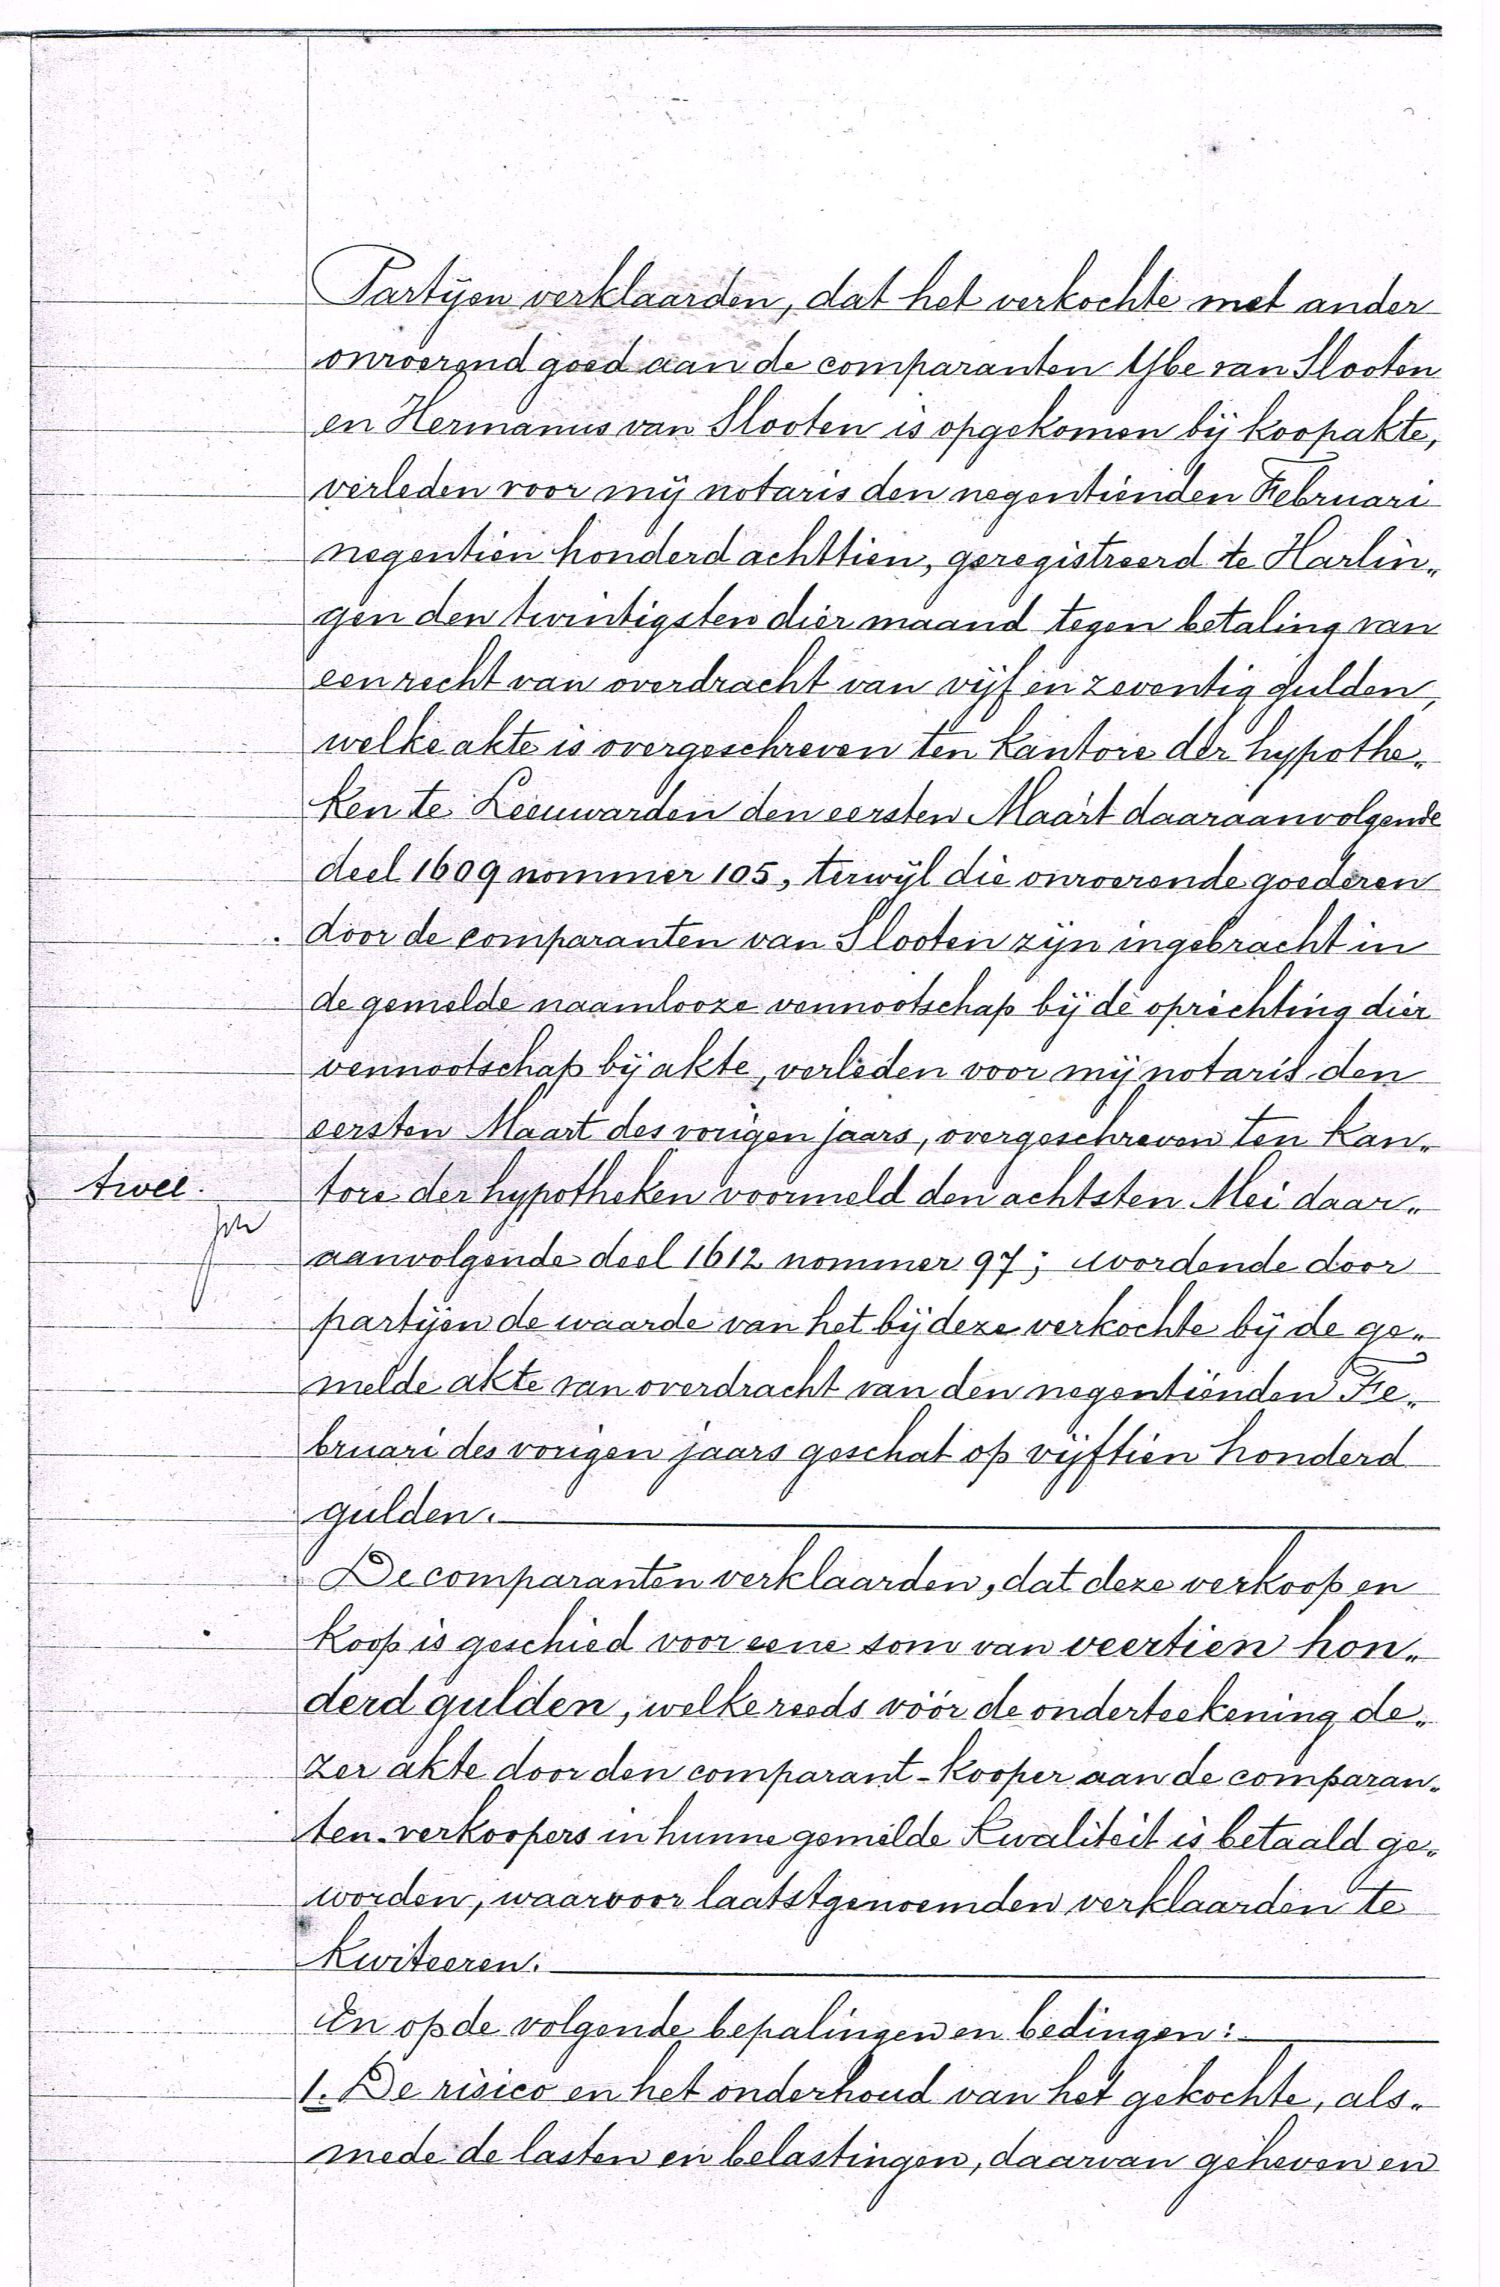 Partijen verklaarden, dat het verkochte met ander
onroerend goed aan de comparanten Ybe van Slooten
en Hermanus van Slooten is opgekomen bij koopakte,
verleden voor mij notaris den negentienden Februari
negentien honderd achttien, geregistreerd te Harlin„
gen den twintigsten dier maand tegen betaling van
een recht van overdracht van vijf en zeventig gulden,
welke akte is overgeschreven ten kantore der hypothe„
ken te Leeuwarden den eersten Maart daaraanvolgende
deel 1609 nommer 105, terwijl die onroerende goederen
door de comparanten van Slooten zijn ingebracht in
de gemelde naamlooze vennootschap bij de oprichting dier
vennootschap bij akte, verleden voor mij notaris den
eersten Maart des vorigen jaars, overgeschreven ten kan„
twee.
tore der hypotheken voormeld den achtsten Mei daar„
aanvolgende deel 1612 nommer 97; wordende door
partijen de waarde van het bij deze verkochte bij de ge„
melde akte van overdracht van den negentienden Fe„
bruari des vorigen jaars geschat op vijftien honderd
gulden.
De comparanten verklaarden, dat deze verkoop en
koop is geschied voor eene som van veertien hon„
derd gulden, welke reeds vóór de onderteekening de„
zer akte door den comparant-kooper aan de comparan„
ten-verkoopers in hunne gemelde kwaliteit is betaald ge„
worden, waarvoor laatstgenoemden verklaarden te
kwiteeren.
En op de volgende bepalingen en bedingen:
1. De risico en het onderhoud van het gekochte, als„
mede de lasten en belastingen, daarvan geheven en